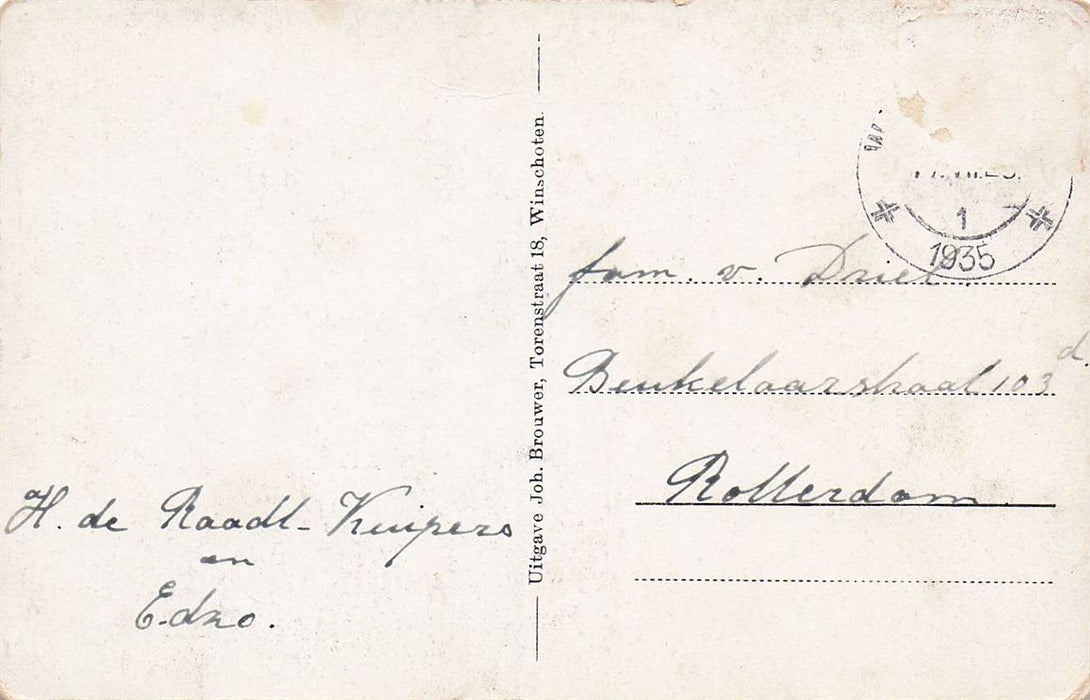 H. de Raadt-Kuipers
en
Edzo.
Uitgave Joh. Brouwer, Torenstraat 18, Winschoten.
1
1935
fam. v. Driel.
Beukelaarstraat 103 d.
Rotterdam